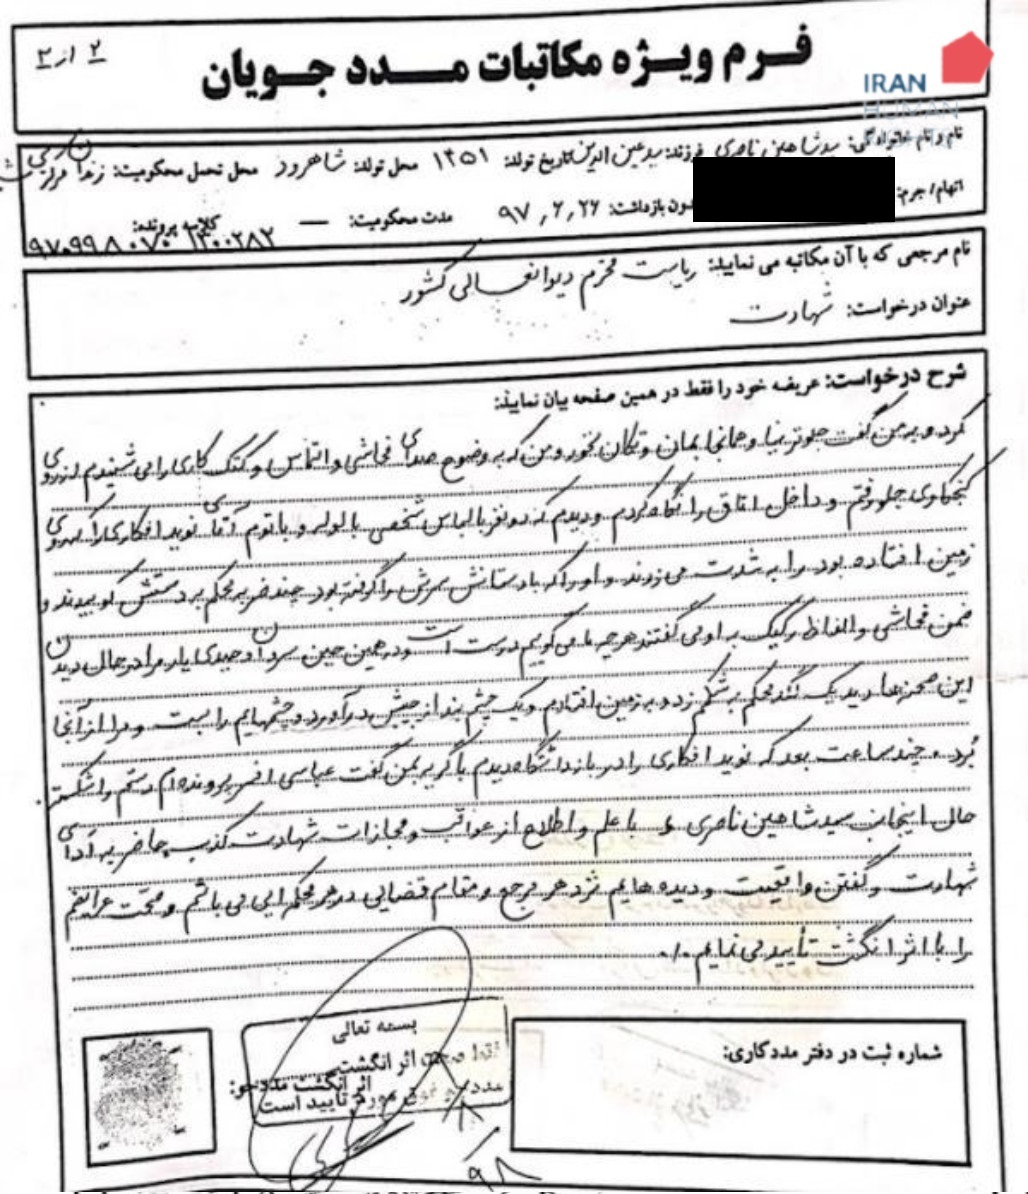 ۲ از ۲
فرم ویژه مکاتبات مدد جویان
IRAN
HUMAN
نام و نام خانوادگی: سید شاهین ناصری فرزند: سید عین الدین تاریخ تولد: ۱۳۵۱ محل تولد: شاهرود محل تحمل محکومیت: زندان مرکزی
اتهام/ جرم: بازداشت: ۹۷,۶,۲۶ مدت محکومیت: — کلاسه پرونده:
۹۷۰۹۹۸۰۷۰۱۳۰۰۲۸۲
نام مرجعی که با آن مکاتبه می نمایید: ریاست محترم دیوانعالی کشور
عنوان درخواست: شهادت
شرح درخواست: عریضه خود را فقط در همین صفحه بیان نمایید:
کرد و به من گفت جلوتر نیا و همانجا بمان و تکان نخور و من که به وضوح صدای فحاشی و التماس و کتک کاری را می شنیدم از روی
کنجکاوی جلو رفتم و داخل اتاق را نگاه کردم و دیدم که دو نفر با لباس شخصی با لوله و باتوم آقای نوید افکاری را که روی
زمین افتاده بود را به شدت می زدند و او را که با دستانش سرش را گرفته بود چند ضربه محکم بر دستش کوبیدند و
ضمن فحاشی و الفاظ رکیک به او می گفتند هر چه ما می گوییم درست است و در همین حین سروان جیدی یار مرا در حال دیدن
این صحنه ها دید یک لگد محکم بر شکمم زد و به زمین افتادم و یک چشم بند از جیبش در آورد و چشمهایم را بست و مرا از آنجا
بُرد. چند ساعت بعد که نوید افکاری را در بازداشتگاه دیدم با گریه بمن گفت عباسی افسر پرونده ام دستم را شکست
حال اینجانب سید شاهین ناصری با علم و اطلاع از عواقب و مجازات شهادت کذب حاضر به ادای
شهادت و گفتن واقعیت و دیده هایم نزد هر مرجع و مقام قضایی در هر محکمه ایی می باشم و صحت عرایضم
را با اثر انگشت تأیید می نمایم./.
بسمه تعالی
فقط صحت اثر انگشت
اثر انگشت مددجو:
مددجو فوق مورد تایید است
شماره ثبت در دفتر مددکاری: